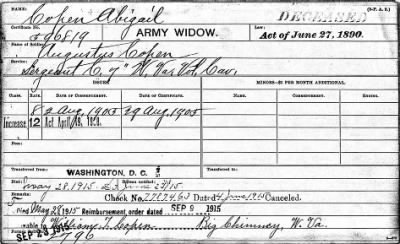 NAME: (3-P. A. R.)
Copen Abigail DECEASED
Certificate No.
596819 ARMY WIDOW. Act of June 27, 1890.
Name of Soldier:
Augustus Copen
Service:
Sergeant C, 7" W. Va Vol. Cav.
ISSUES MINORS—$2 PER MONTH ADDITIONAL.
CLASS. RATE. DATE OF COMMENCEMENT. DATE OF CERTIFICATE. NAME. DATE OF COMMENCEMENT. NAME. DATE OF COMMENCEMENT.
8 2 Aug, 1905 29 Aug, 1905
Increase 12 Act April 19, 1908.
Transferred from Transferred from
WASHINGTON, D. C.
Died: Bureau notified:
May 28, 1915
Check No. Dated 4 June 1915 Canceled.
Filed May 28 1915 Reimbursement, order dated SEP 9 1915
William T. Copen Big Chimney, W. Va.
796